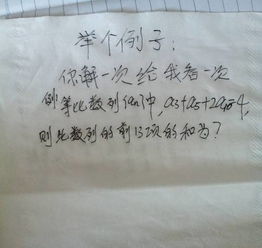 举个例子：
你解一次给我看一次
例 等比数列{an}中，a3+a5+2a10=4，
则此数列的前13项的和为？